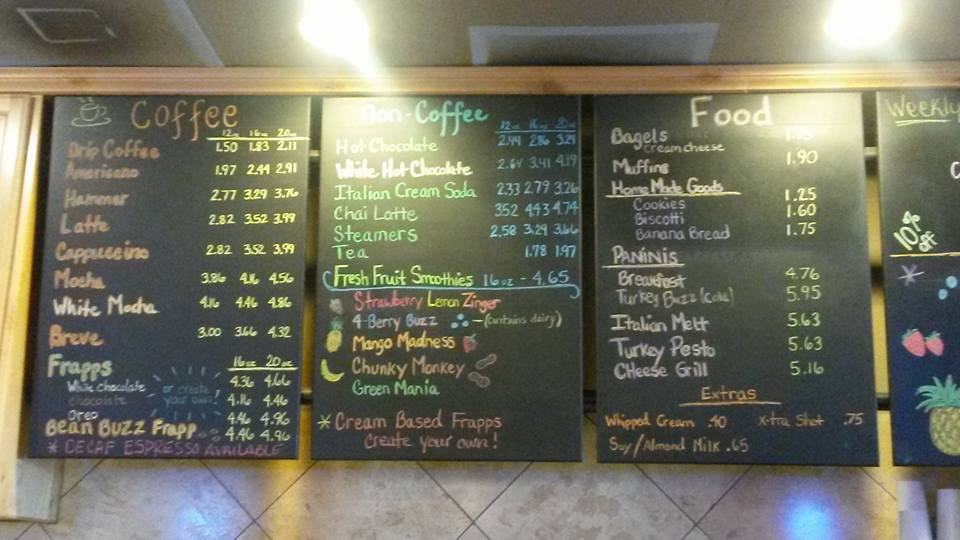 Coffee
12oz 16oz 20oz
Drip Coffee 1.50 1.83 2.11
Americano 1.97 2.44 2.91
Hammer 2.77 3.29 3.76
Latte 2.82 3.52 3.99
Cappuccino 2.82 3.52 3.99
Mocha 3.86 4.16 4.56
White Mocha 4.16 4.46 4.86
Breve 3.00 3.66 4.32
Frapps 16oz 20oz
White Chocolate 4.36 4.66
chocolate 4.16 4.46
Oreo 4.46 4.96
or create your own!
Bean Buzz Frapp 4.46 4.96
* DECAF ESPRESSO AVAILABLE
Non-Coffee
12oz 16oz 20oz
Hot Chocolate 2.44 2.86 3.29
White Hot Chocolate 2.64 3.41 4.19
Italian Cream Soda 2.33 2.79 3.26
Chai Latte 3.52 4.43 4.74
Steamers 2.58 3.29 3.66
Tea 1.78 1.97
Fresh Fruit Smoothies 16oz - 4.65
Strawberry Lemon Zinger
4-Berry Buzz - (contains dairy)
Mango Madness
Chunky Monkey
Green Mania
* Cream Based Frapps
create your own!
Food
Bagels
cream cheese
Muffins 1.90
Home Made Goods
Cookies 1.25
Biscotti 1.60
Banana Bread 1.75
PANINIS
Breakfast 4.76
Turkey Buzz (cold) 5.95
Italian Melt 5.63
Turkey Pesto 5.63
CHeese Grill 5.16
Extras
Whipped Cream .40 X-tra Shot .75
Soy/Almond Milk .65
Weekly
10% off